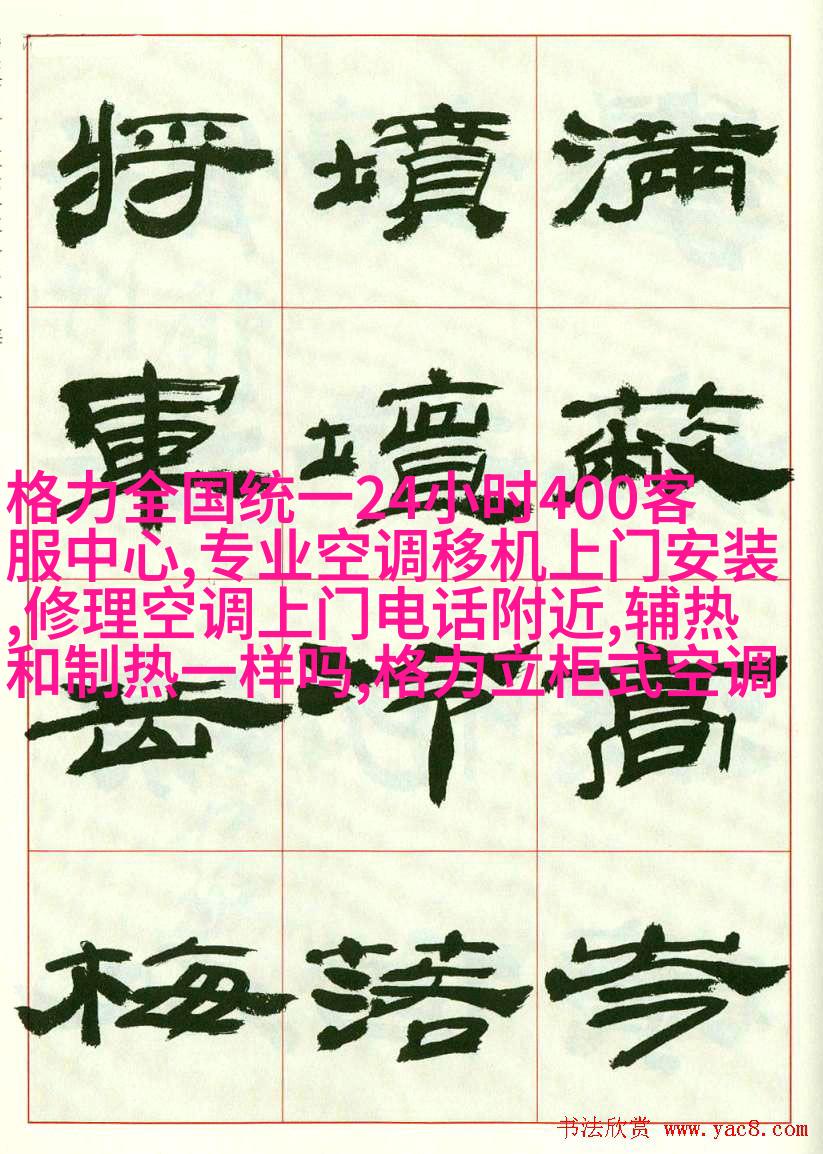 滿蔽高岑
墳壇落
將軍岳梅
格力全国统一24小时400客
服中心,专业空调移机上门安装
,修理空调上门电话附近,辅热
和制热一样吗,格力立柜式空调
书法欣赏 www.yac8.com